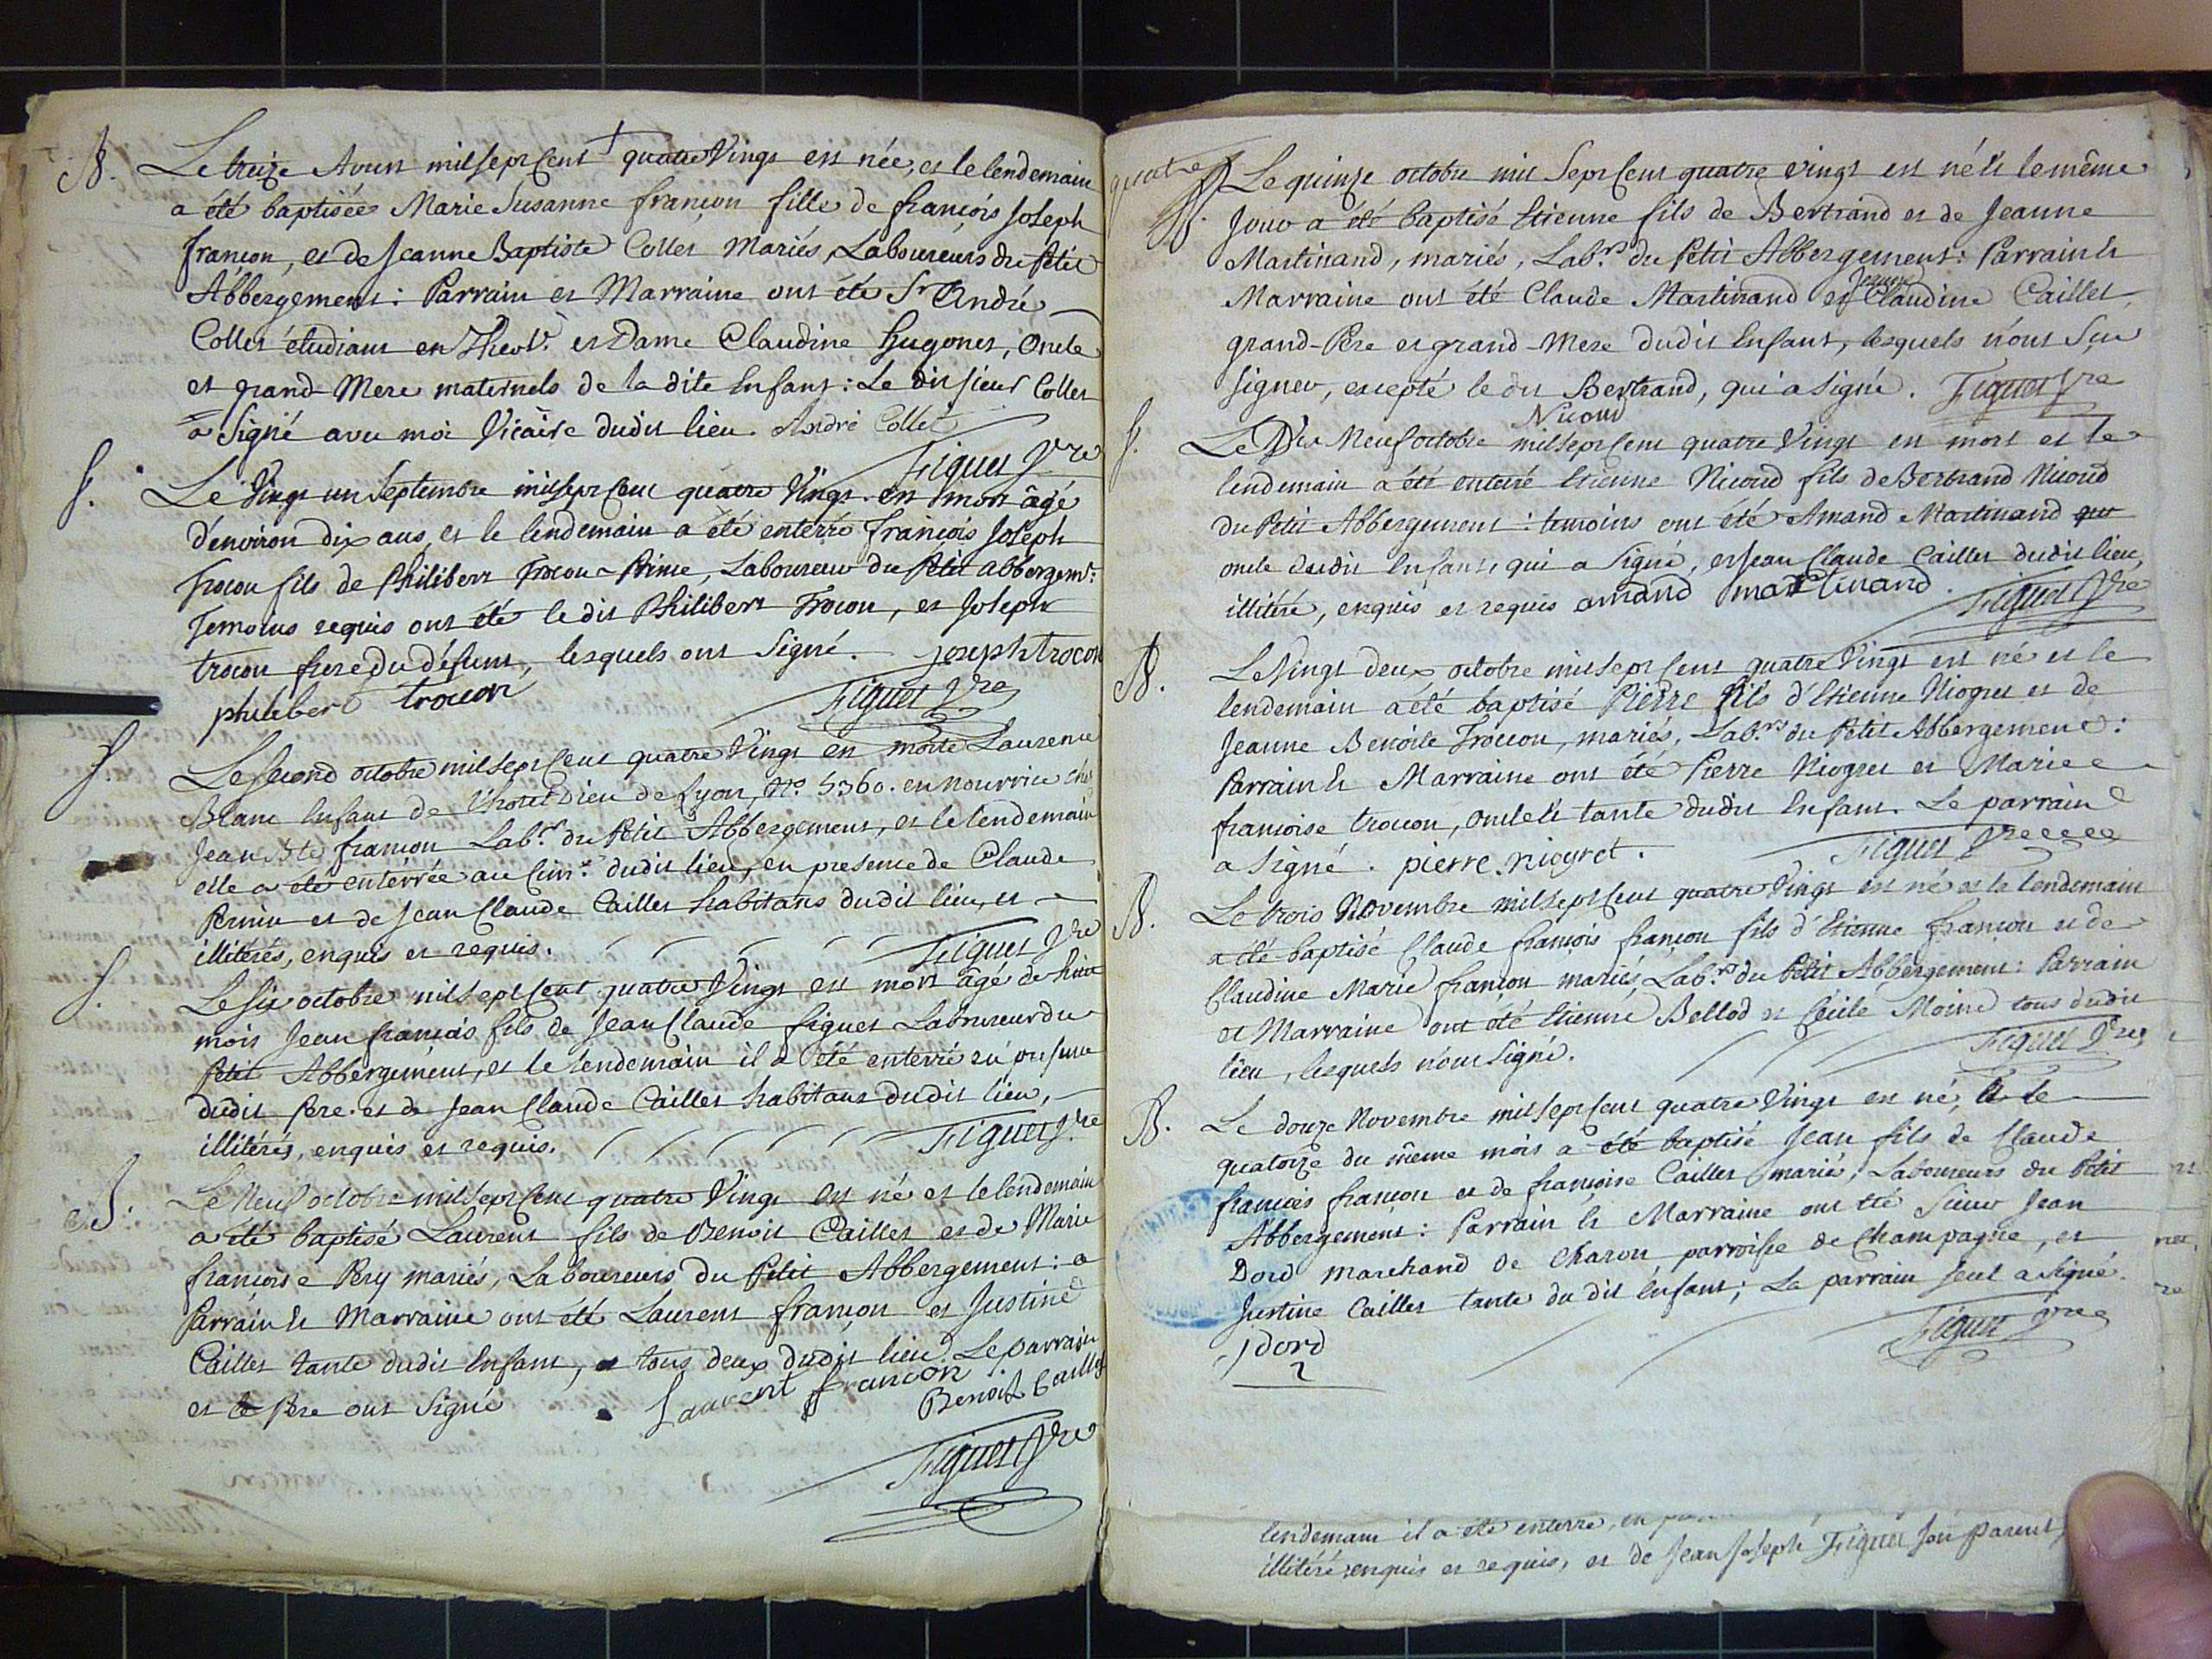 B. Le treize Aoust mil sept cent quatre Vingt est née, et le lendemain
a été baptisée Marie Susanne françon fille de françois Joseph
françon, et de Jeanne Baptiste Collet Mariés, Laboureurs du Petit
Abbergement: Parrain et Marraine ont été Sr André
Collet étudiant en Theol. et Dame Claudine Hugonet, Oncle
et grand-Mere maternels de la dite Enfant: Le dit sieur Collet
a signé avec moi Vicaire dudit lieu. André Collet
Figuet Vre
S. Le Vingt un Septembre mil sept cent quatre Vingt est mort âgé
d'environ dix ans, et le lendemain a été enterré françois Joseph
Trocon fils de Philibert Trocon-Prime, Laboureur du Petit abbergemt:
Temoins requis ont été le dit Philibert Trocon, et Joseph
trocon frere du défunt, lesquels ont Signé. joseph trocon
philibert trocon Figuet Vre
S Le Second octobre mil sept cent quatre Vingt est morte Laurence
Blanc Enfant de l'hotel Dieu de Lyon, No 5360. en nourrice chez
Jean Bte françon Labr du Petit Abbergement, et le lendemain
elle a été enterrée au Cimre dudit lieu, en presence de Claude
Pernin et de Jean Claude Caillet habitans dudit lieu, et
illitérés, enquis et requis. Figuet Vre
S. Le six octobre mil sept cent quatre Vingt est mort âgé de huit
mois Jean françois fils de Jean Claude figuet Laboureur du
Petit Abbergement, et le lendemain il a été enterré en presence
dudit Pere et de Jean Claude Caillet habitans dudit lieu,
illitérés, enquis et requis. Figuet Vre
Le Neuf octobre mil sept cent quatre Vingt est né et le lendemain
a été baptisé Laurent fils de Benoit Caillet et de Marie
françoise Pery mariés, Laboureurs du Petit Abbergement:
Parrain et Marraine ont été Laurent françon et Justine
Caillet tante dudit Enfant, tous deux dudit lieu. Le parrain
et le Pere ont Signé Laurent françon Benoit Caillet
Figuet Vre
quatre
B. Le quinze octobre mil Sept Cent quatre vingt est né et le même
Jour a été baptisé Etienne fils de Bertrand et de Jeanne
Martinand, mariés, Labrs du Petit Abbergement: Parrain et
Jeanne
Marraine ont été Claude Martinand et Claudine Caillet,
grand-Pere et grand-Mere dudit Enfant, lesquels n'ont Scu
signer, excepté le dit Bertrand, qui a signé. Figuet Vre
Nicoud
S. Le Dix Neuf octobre mil sept cent quatre Vingt est mort et le
lendemain a été enterré Etienne Nicoud fils de Bertrand Nicoud
du Petit Abbergement: temoins ont été Amand Martinand
oncle dudit Enfant, qui a Signé, et Jean Claude Caillet dudit lieu,
illitéré, enquis et requis amand martinand Figuet Vre
B. Le Vingt deux octobre mil sept cent quatre Vingt est né et le
lendemain a été baptisé Pierre fils d'Etienne Niogret et de
Jeanne Benoite Trocon, mariés, Labrs du Petit Abbergement:
Parrain et Marraine ont été Pierre Niogret et Marie
françoise trocon, oncle et tante dudit Enfant. Le parrain
a signé. pierre niogret. Figuet Vre
B. Le trois Novembre mil sept cent quatre Vingt est né et le lendemain
a été baptisé Claude françois françon fils d'Etienne françon et de
Claudine Marie françon mariés, Labrs du Petit Abbergement: Parrain
et Marraine ont été Etienne Bellod et Cécile Moine tous dudit
lieu, lesquels n'ont signé. Figuet Vre
B. Le douze Novembre mil sept cent quatre Vingt est né, et le
quatorze du même mois a été baptisé Jean fils de Claude
françois françon et de françoise Caillet mariés, Laboureurs du Petit
Abbergement: Parrain et Marraine ont été sieur Jean
Dord marchand de Charon parroisse de Champagne, et
Justine Caillet tante du dit Enfant; Le parrain seul a Signé.
J dord Figuet Vre
lendemain il a été enterré, en
illitéré, enquis et requis, et de Jean Joseph Figuet son parent